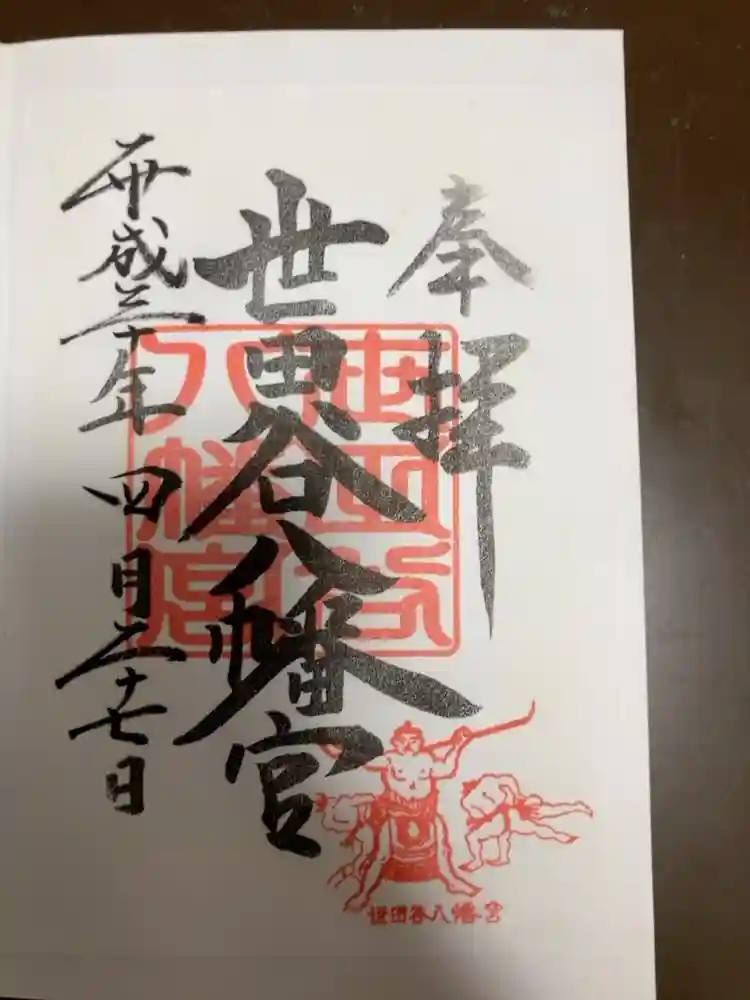 奉拝
世田谷八幡宮
平成三十年四月二十七日
世田谷八幡宮
世田谷八幡宮